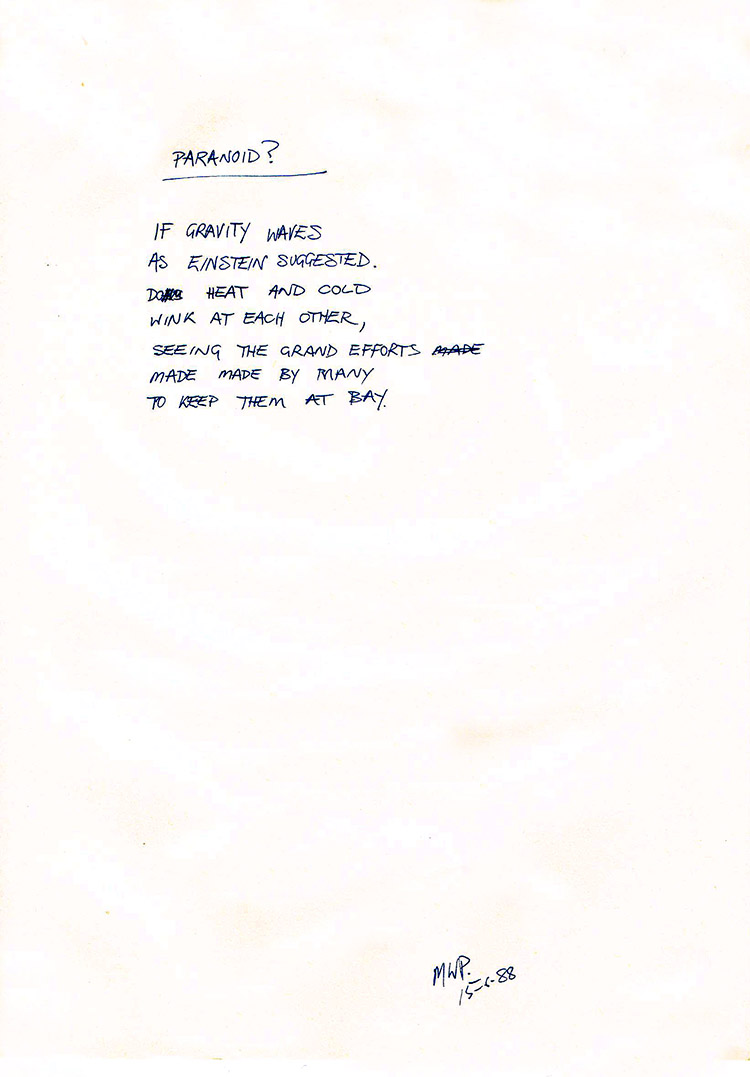 PARANOID?
IF GRAVITY WAVES
AS EINSTEIN SUGGESTED.
DO HEAT AND COLD
WINK AT EACH OTHER,
SEEING THE GRAND EFFORTS MADE
MADE MADE BY MANY
TO KEEP THEM AT BAY.
MWP.
15-6-88